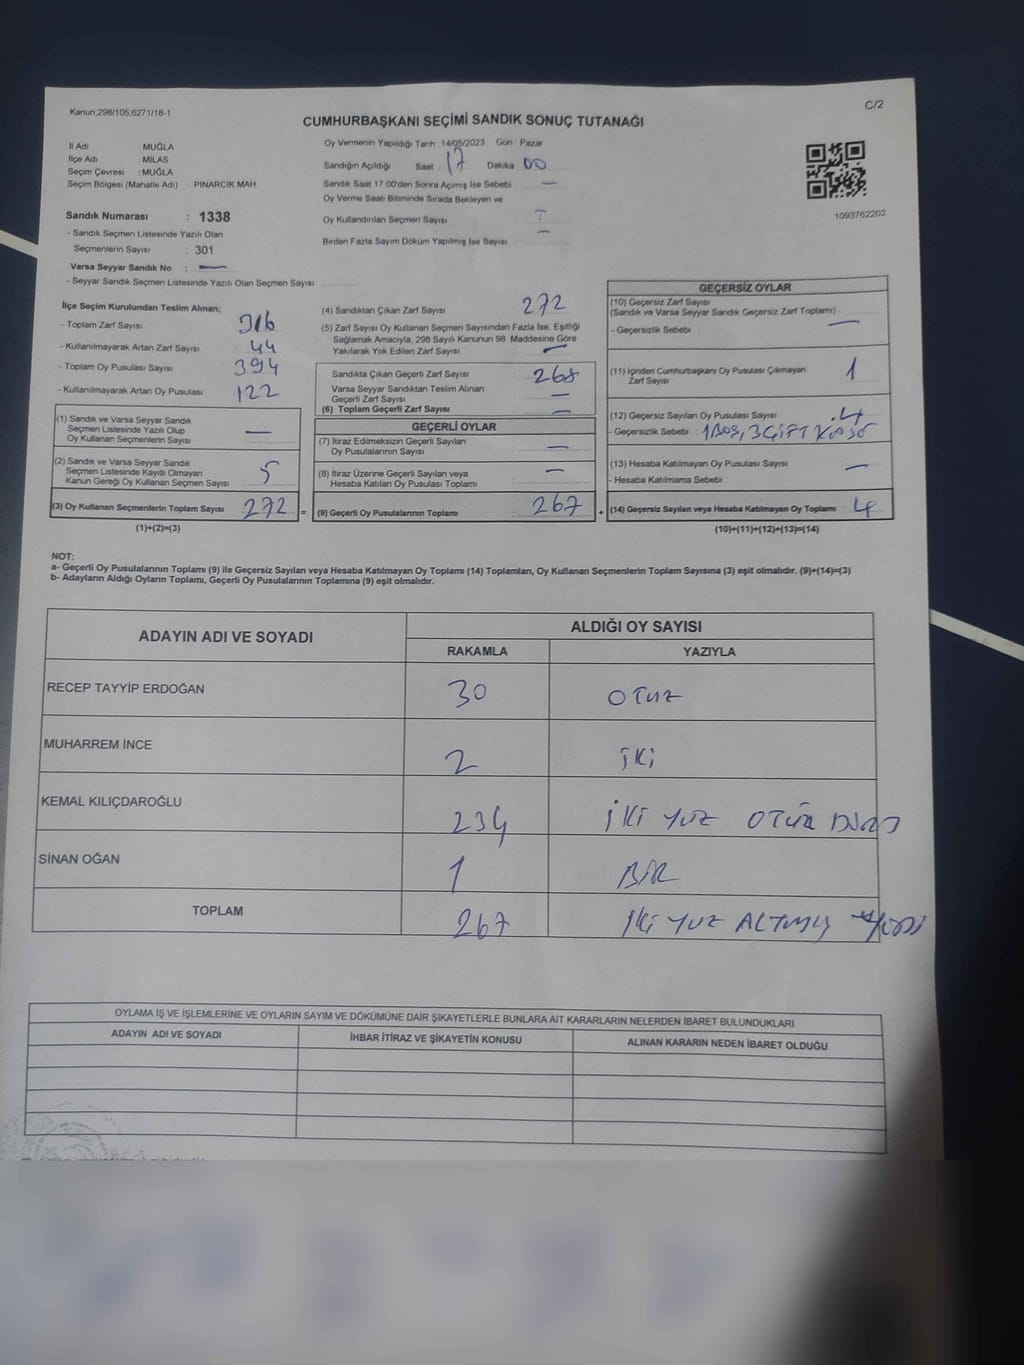 Kanun:298/105;6271/18-1
C/2
CUMHURBAŞKANI SEÇİMİ SANDIK SONUÇ TUTANAĞI
İl Adı MUĞLA
İlçe Adı MİLAS
Seçim Çevresi : MUĞLA
Seçim Bölgesi (Mahalle Adı) : PINARCIK MAH.
Oy Vermenin Yapıldığı Tarih : 14/05/2023 Gün : Pazar
Sandığın Açıldığı Saat : 17 Dakika : 00
Sandık Saat 17:00'den Sonra Açmış İse Sebebi : —
Oy Verme Saati Bitiminde Sırada Bekleyen ve
Oy Kullandırılan Seçmen Sayısı : —
Birden Fazla Sayım Döküm Yapılmış İse Sayısı : —
1093762202
Sandık Numarası : 1338
- Sandık Seçmen Listesinde Yazılı Olan
Seçmenlerin Sayısı : 301
Varsa Seyyar Sandık No : —
- Seyyar Sandık Seçmen Listesinde Yazılı Olan Seçmen Sayısı:
İlçe Seçim Kurulundan Teslim Alınan;
- Toplam Zarf Sayısı 316
- Kullanılmayarak Artan Zarf Sayısı : 44
- Toplam Oy Pusulası Sayısı : 394
- Kullanılmayarak Artan Oy Pusulası : 122
(1) Sandık ve Varsa Seyyar Sandık
Seçmen Listesinde Yazılı Olup
Oy Kullanan Seçmenlerin Sayısı : —
(2) Sandık ve Varsa Seyyar Sandık
Seçmen Listesinde Kayıtlı Olmayan
Kanun Gereği Oy Kullanan Seçmen Sayısı : 5
(3) Oy Kullanan Seçmenlerin Toplam Sayısı : 272
(1)+(2)=(3)
(4) Sandıktan Çıkan Zarf Sayısı : 272
(5) Zarf Sayısı Oy Kullanan Seçmen Sayısından Fazla İse, Eşitliği
Sağlamak Amacıyla, 298 Sayılı Kanunun 98. Maddesine Göre
Yakılarak Yok Edilen Zarf Sayısı : —
Sandıkta Çıkan Geçerli Zarf Sayısı : 268
Varsa Seyyar Sandıktan Teslim Alınan
Geçerli Zarf Sayısı : —
(6) Toplam Geçerli Zarf Sayısı : —
GEÇERLİ OYLAR
(7) İtiraz Edilmeksizin Geçerli Sayılan
Oy Pusulalarının Sayısı : —
(8) İtiraz Üzerine Geçerli Sayılan veya
Hesaba Katılan Oy Pusulası Toplamı : —
= (9) Geçerli Oy Pusulalarının Toplamı : 267 +
GEÇERSİZ OYLAR
(10) Geçersiz Zarf Sayısı
(Sandık ve Varsa Seyyar Sandık Geçersiz Zarf Toplamı)
- Geçersizlik Sebebi : —
(11) İçinden Cumhurbaşkanı Oy Pusulası Çıkmayan
Zarf Sayısı : 1
(12) Geçersiz Sayılan Oy Pusulası Sayısı : 4
- Geçersizlik Sebebi : 1 BOŞ, 3 ÇİFT
(13) Hesaba Katılmayan Oy Pusulası Sayısı : —
- Hesaba Katılmama Sebebi :
(14) Geçersiz Sayılan veya Hesaba Katılmayan Oy Toplamı : 4
(10)+(11)+(12)+(13)=(14)
NOT:
a- Geçerli Oy Pusulalarının Toplamı (9) ile Geçersiz Sayılan veya Hesaba Katılmayan Oy Toplamı (14) Toplamları, Oy Kullanan Seçmenlerin Toplam Sayısına (3) eşit olmalıdır. (9)+(14)=(3)
b- Adayların Aldığı Oyların Toplamı, Geçerli Oy Pusulalarının Toplamına (9) eşit olmalıdır.
ADAYIN ADI VE SOYADI ALDIĞI OY SAYISI
RAKAMLA YAZIYLA
RECEP TAYYİP ERDOĞAN 30 OTUZ
MUHARREM İNCE 2 İKİ
KEMAL KILIÇDAROĞLU 234 İKİ YUZ OTUZ DÖRT
SİNAN OĞAN 1 BİR
TOPLAM 267 İKİ YUZ ALTMIŞ YEDİ
OYLAMA İŞ VE İŞLEMLERİNE VE OYLARIN SAYIM VE DÖKÜMÜNE DAİR ŞİKAYETLERLE BUNLARA AİT KARARLARIN NELERDEN İBARET BULUNDUKLARI
ADAYIN ADI VE SOYADI İHBAR İTİRAZ VE ŞİKAYETİN KONUSU ALINAN KARARIN NEDEN İBARET OLDUĞU